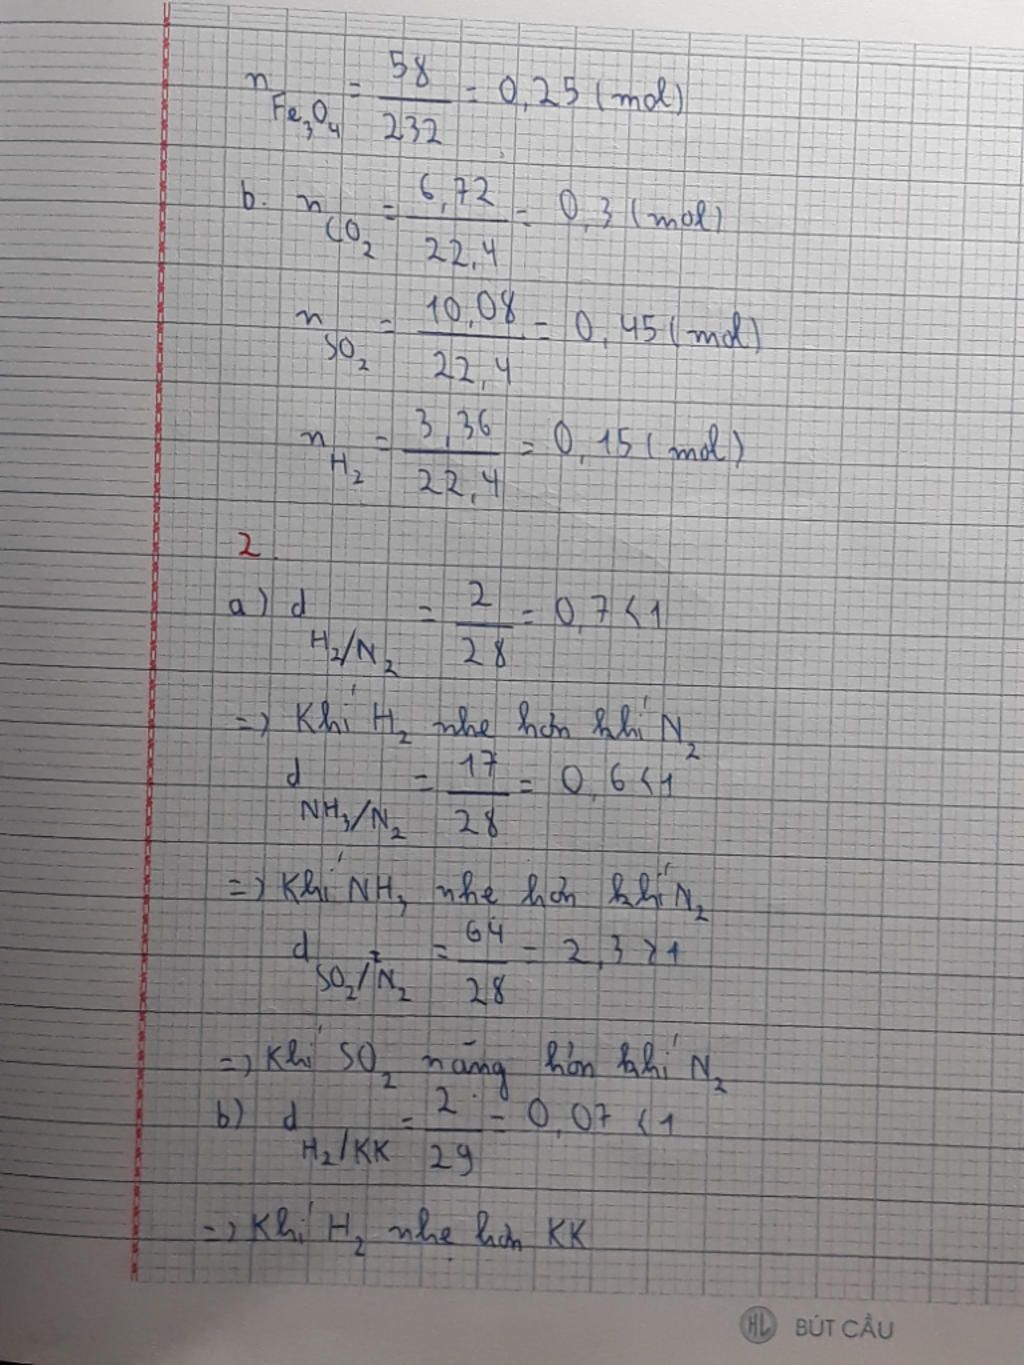 n Fe₃O₄ = 58/232 = 0,25 (mol)
b. n CO₂ = 6,72/22,4 = 0,3 (mol)
n SO₂ = 10,08/22,4 = 0,45 (mol)
n H₂ = 3,36/22,4 = 0,15 (mol)
2.
a) d H₂/N₂ = 2/28 = 0,7 < 1
=> Khí H₂ nhẹ hơn khí N₂
d NH₃/N₂ = 17/28 = 0,6 < 1
=> Khí NH₃ nhẹ hơn khí N₂
d SO₂/N₂ = 64/28 = 2,3 > 1
=> Khí SO₂ nặng hơn khí N₂
b) d H₂/KK = 2/29 = 0,07 < 1
=> Khí H₂ nhẹ hơn KK
HL BÚT CẦU